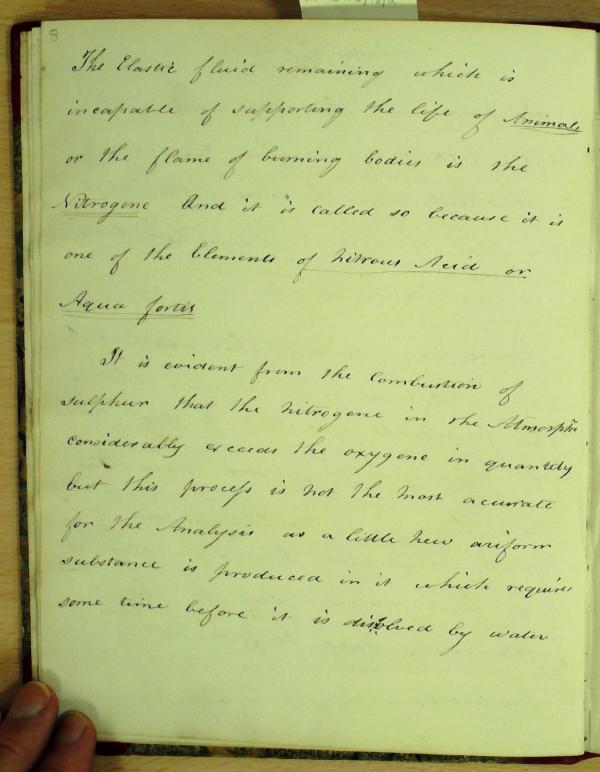 8
The Elastic fluid remaining which is
incapable of supporting the life of Animals
or the flame of burning bodies is the
Nitrogene And it is called so because it is
one of the Elements of Nitrous Acid or
Aqua fortis
It is evident from the Combustion of
sulphur that the Nitrogene in the Atmosphe
considerably exceeds the oxygene in quantity
but this process is not the most accurate
for the Analysis as a little new æriform
substance is produced in it which requires
some time before it is dissolved by water